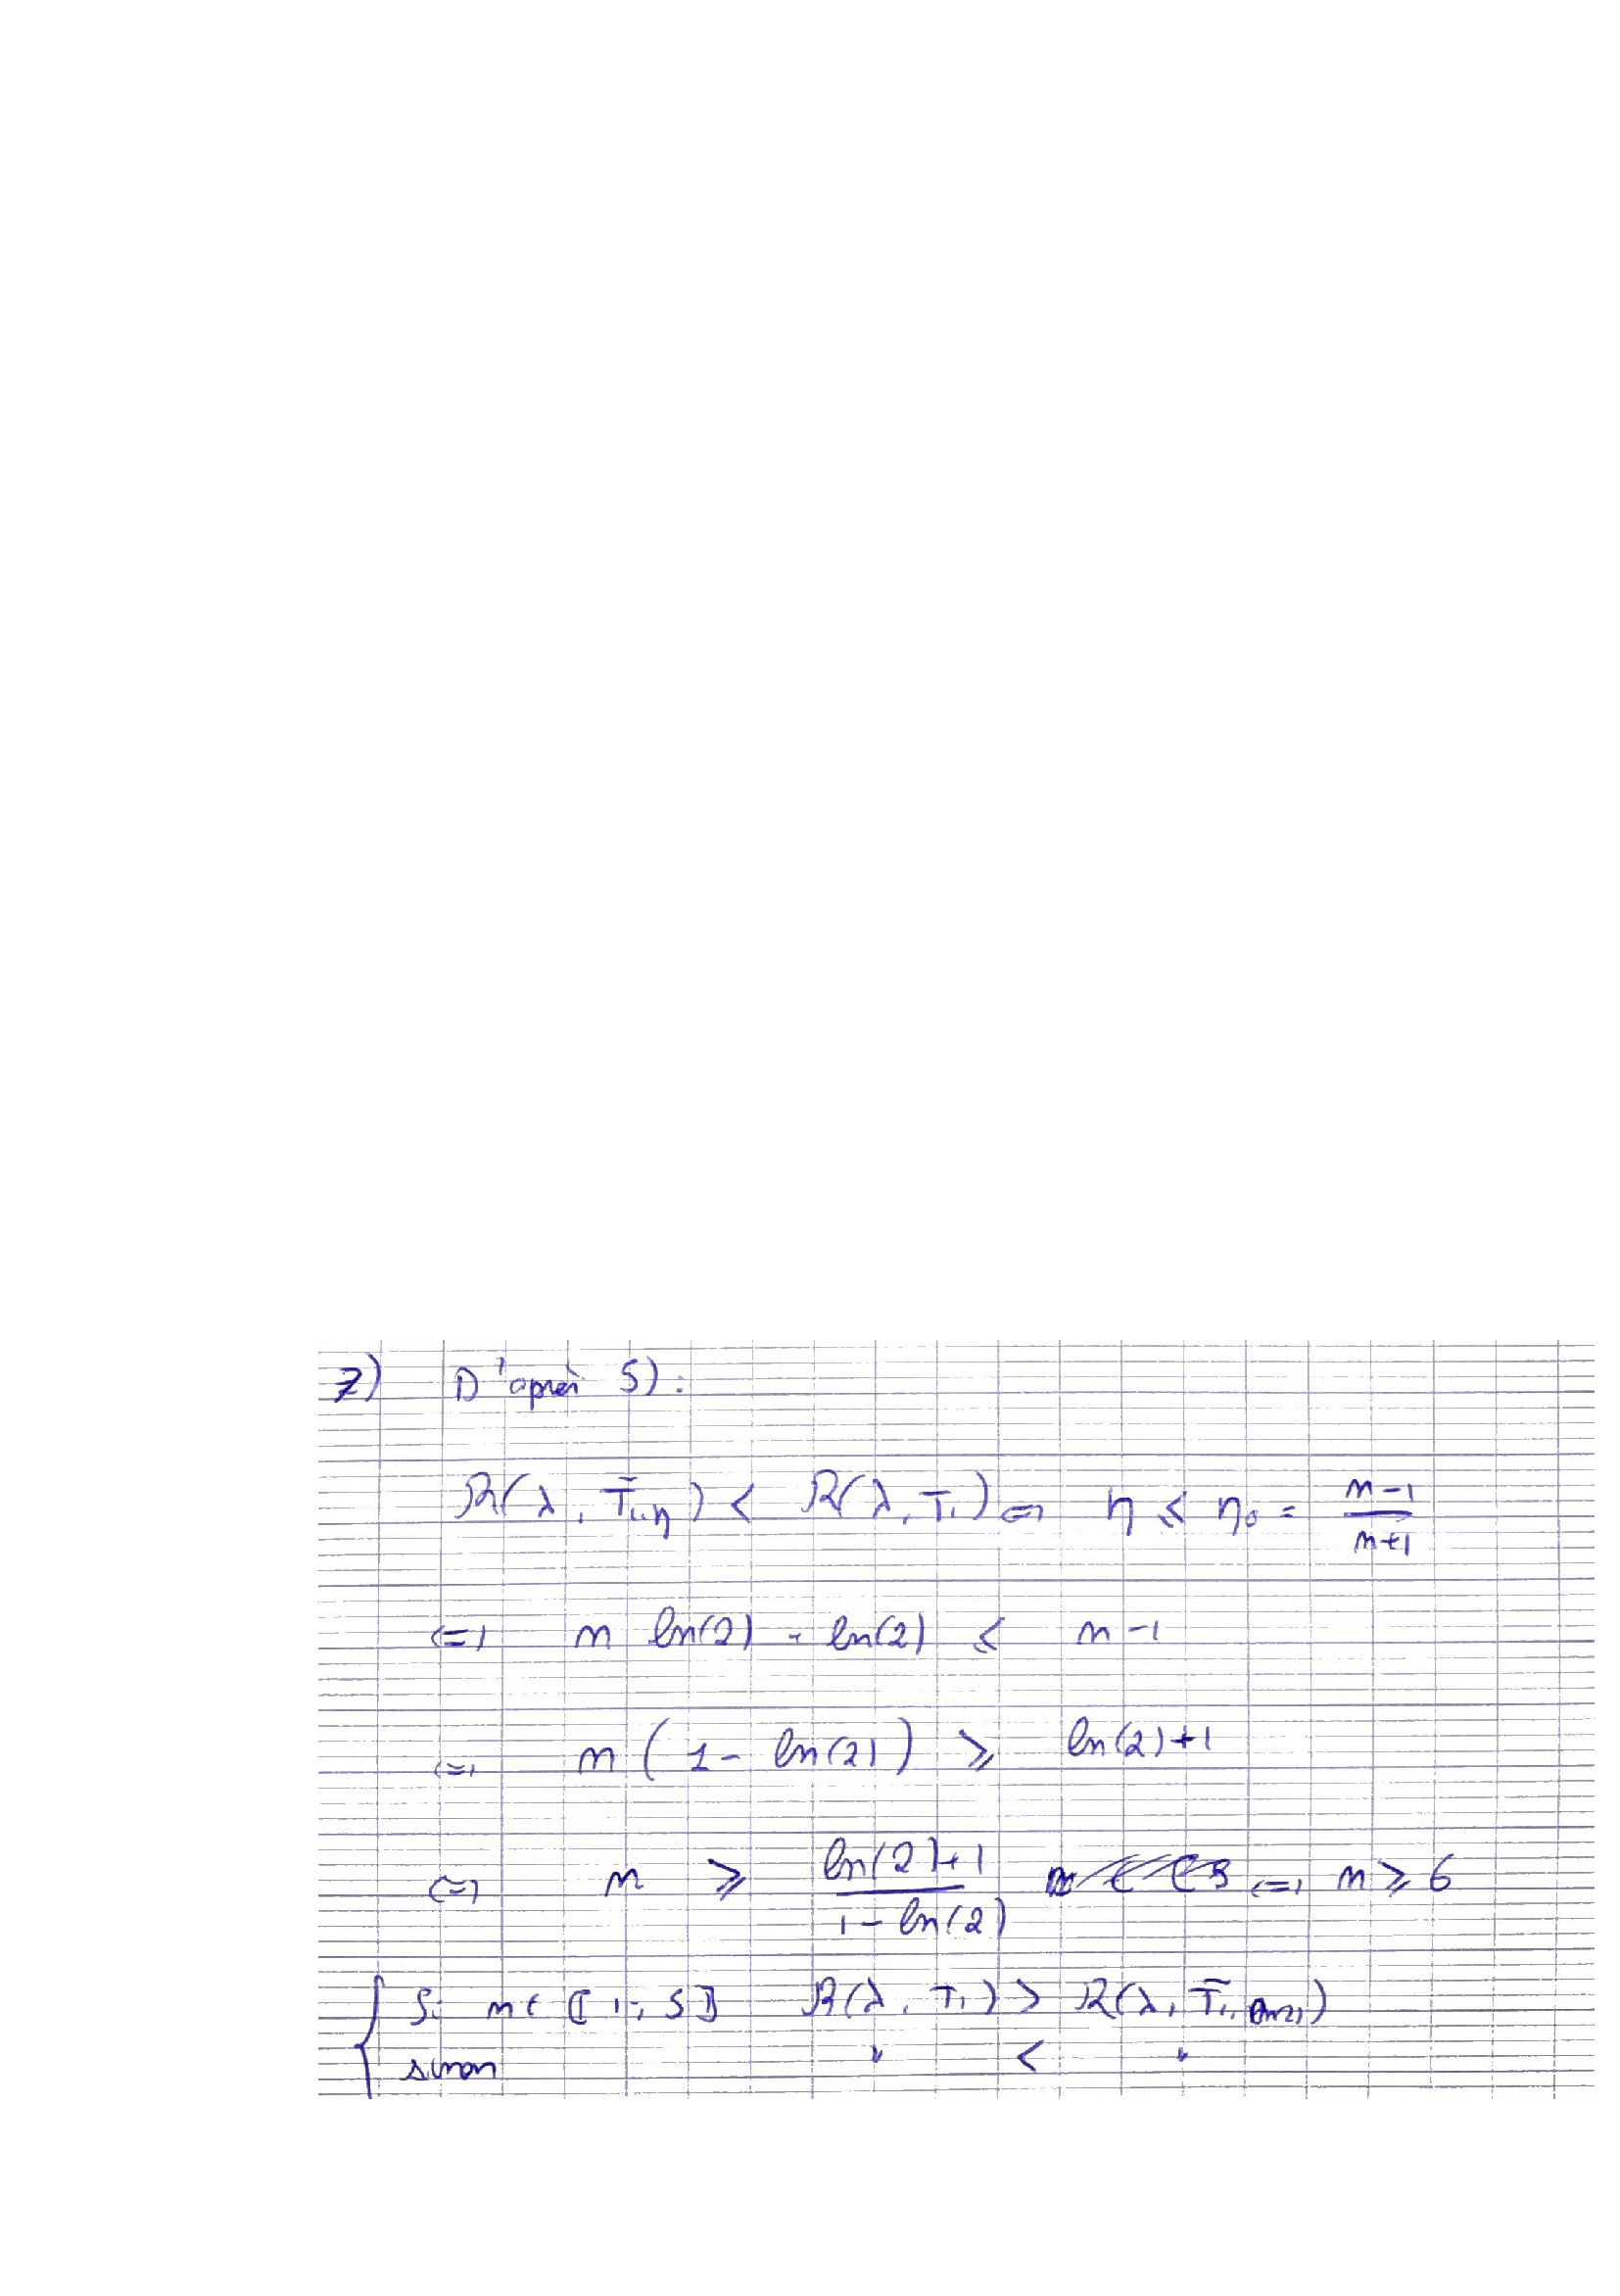 7) D'après 5) :
R(λ, T̃₁,η) < R(λ, T₁) ⇔ η ≤ η₀ = (n-1)/(n+1)
⇔ n ln(2) - ln(2) ≤ n-1
⇔ n (1 - ln(2)) ≥ ln(2)+1
⇔ n ≥ (ln(2)+1)/(1 - ln(2)) ⇔ n ≥ 6
Si n ∈ ⟦1, 5⟧ R(λ, T₁) > R(λ, T̃₁,ln(2))
sinon " < "